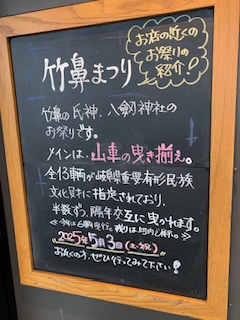 お店の近くの
お祭りの
紹介!
竹鼻まつり
竹鼻の氏神、八剱神社の
お祭りです。
メインは、山車の曳き揃え。
全13輌が岐阜県重要有形民族
文化財に指定されており、
半数ずつ、隔年交互に曳かれます。
2025年5月3日(土・祝)
お近くの方、ぜひ行ってみて下さい!